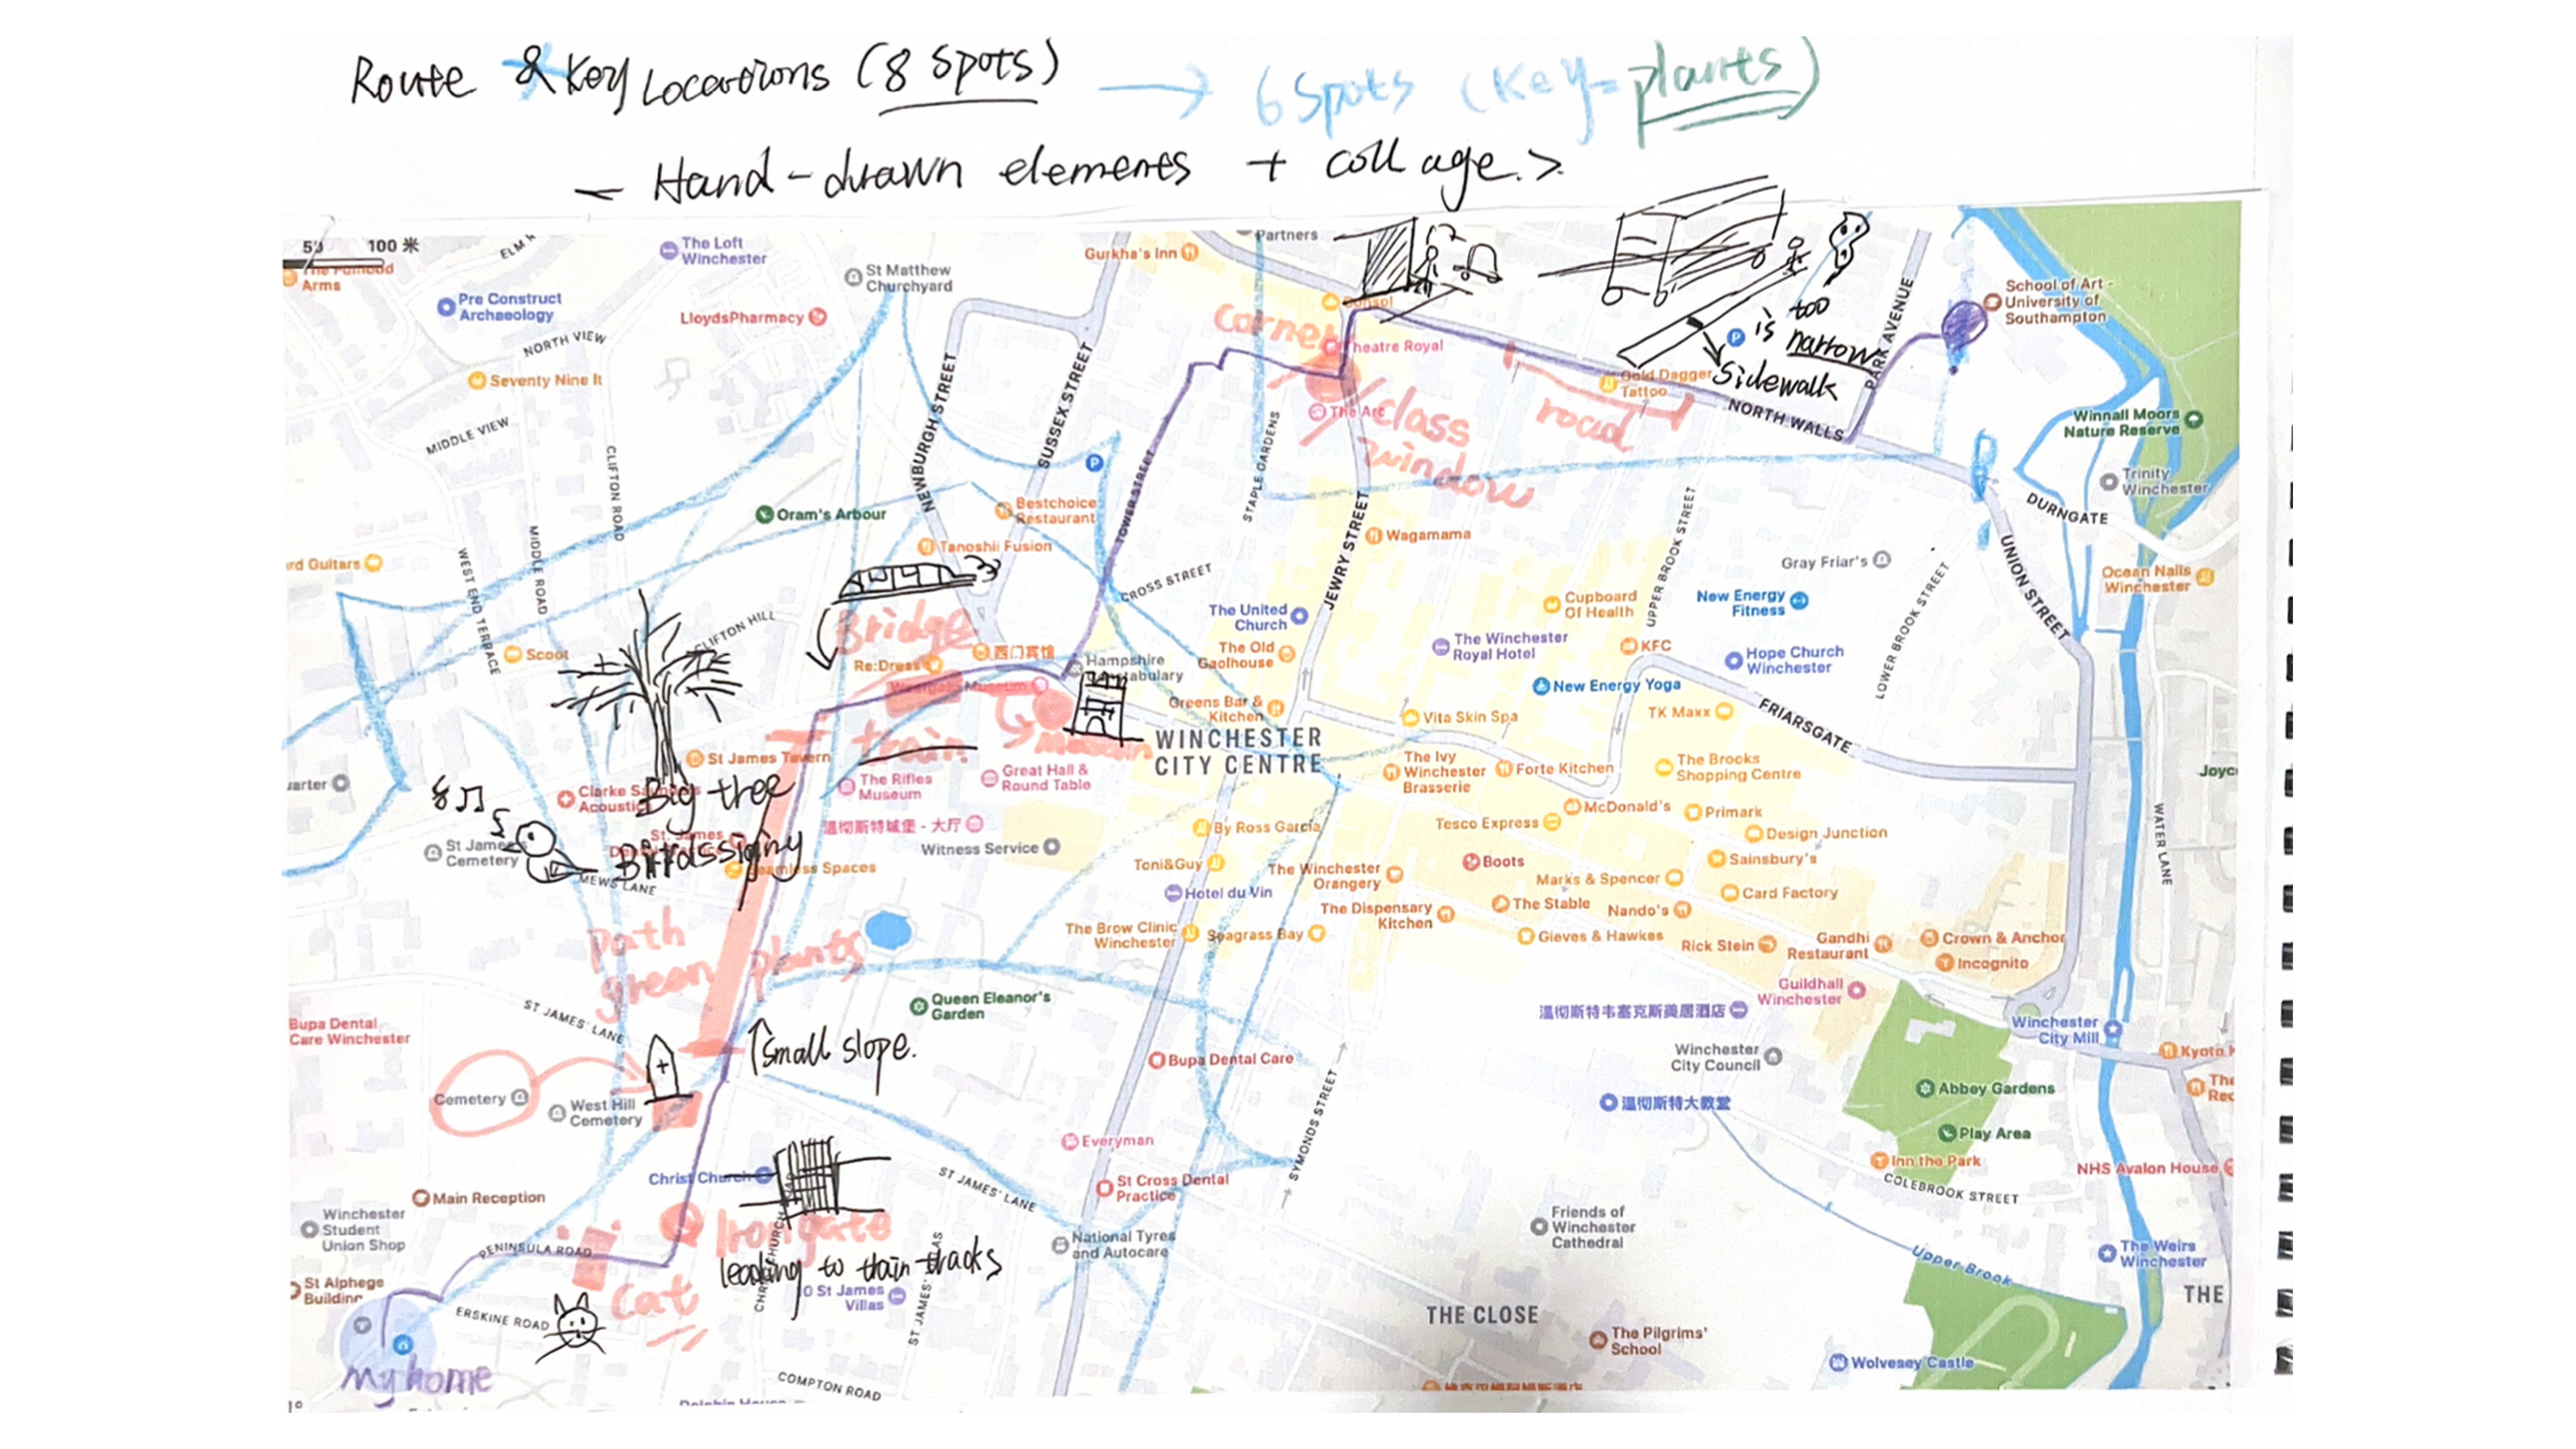 Route & Key Locations (8 Spots)
6 Spots (Key= plants)
Hand-drawn elements + collage.>
100 米
ELM
Arms
The Loft
Winchester
St Matthew
Churchyard
Gurkha's Inn
Partners
Pre Construct
Archaeology
LloydsPharmacy
NORTH VIEW
Seventy Nine It
MIDDLE VIEW
CLIFTON ROAD
MIDDLE ROAD
WEST END TERRACE
NEWBURGH STREET
SUSSEX STREET
TOWER STREET
STAPLE GARDENS
JEWRY STREET
Corner
Theatre Royal
The Arc
class
window
road
is too
narrow
Sidewalk
Gold Dagger
Tattoo
NORTH WALLS
PARK AVENUE
School of Art -
University of
Southampton
Winnall Moors
Nature Reserve
Trinity
Winchester
DURNGATE
UNION STREET
Ocean Nails
Winchester
Oram's Arbour
Bestchoice
Restaurant
Tanoshii Fusion
rd Guitars
Scoot
CLIFTON HILL
Bridge
Re:Dress
西门宾馆
Westgate Museum
Hampshire
Constabulary
CROSS STREET
The United
Church
The Old
Gaolhouse
Greens Bar &
Kitchen
Wagamama
Cupboard
Of Health
The Winchester
Royal Hotel
KFC
UPPER BROOK STREET
New Energy
Fitness
Gray Friar's
Hope Church
Winchester
LOWER BROOK STREET
New Energy Yoga
TK Maxx
FRIARSGATE
Vita Skin Spa
WINCHESTER
CITY CENTRE
train
St James Tavern
Big tree
Clarke
Acoustic
The Rifles
Museum
Great Hall &
Round Table
温彻斯特城堡 - 大厅
Witness Service
The Ivy
Winchester
Brasserie
Forte Kitchen
The Brooks
Shopping Centre
McDonald's
Primark
Tesco Express
Design Junction
By Ross Garcia
Toni&Guy
Hotel du Vin
The Winchester
Orangery
Boots
Sainsbury's
Marks & Spencer
Card Factory
The Dispensary
Kitchen
The Stable
Nando's
The Brow Clinic
Winchester
Seagrass Bay
Gieves & Hawkes
Rick Stein
Gandhi
Restaurant
Crown & Anchor
Incognito
Guildhall
Winchester
WATER LANE
Joyc
uarter
St James
Cemetery
MEWS LANE
Spaces
path
green plants
ST JAMES' LANE
Queen Eleanor's
Garden
Bupa Dental
Care Winchester
small slope.
Cemetery
West Hill
Cemetery
Bupa Dental Care
温彻斯特韦塞克斯美居酒店
Winchester
City Council
温彻斯特大教堂
Winchester
City Mill
Kyoto K
The
Rec
Abbey Gardens
Play Area
Inn the Park
COLEBROOK STREET
NHS Avalon House
SYMONDS STREET
Everyman
St Cross Dental
Practice
ST JAMES' LANE
Christ Church
Main Reception
Winchester
Student
Union Shop
PENINSULA ROAD
Iron gate
leading to train tracks
National Tyres
and Autocare
Friends of
Winchester
Cathedral
Upper Brook
The Weirs
Winchester
THE
St Alphege
Building
ERSKINE ROAD
cat
St James
Villas
THE CLOSE
The Pilgrims'
School
Wolvesey Castle
my home
COMPTON ROAD